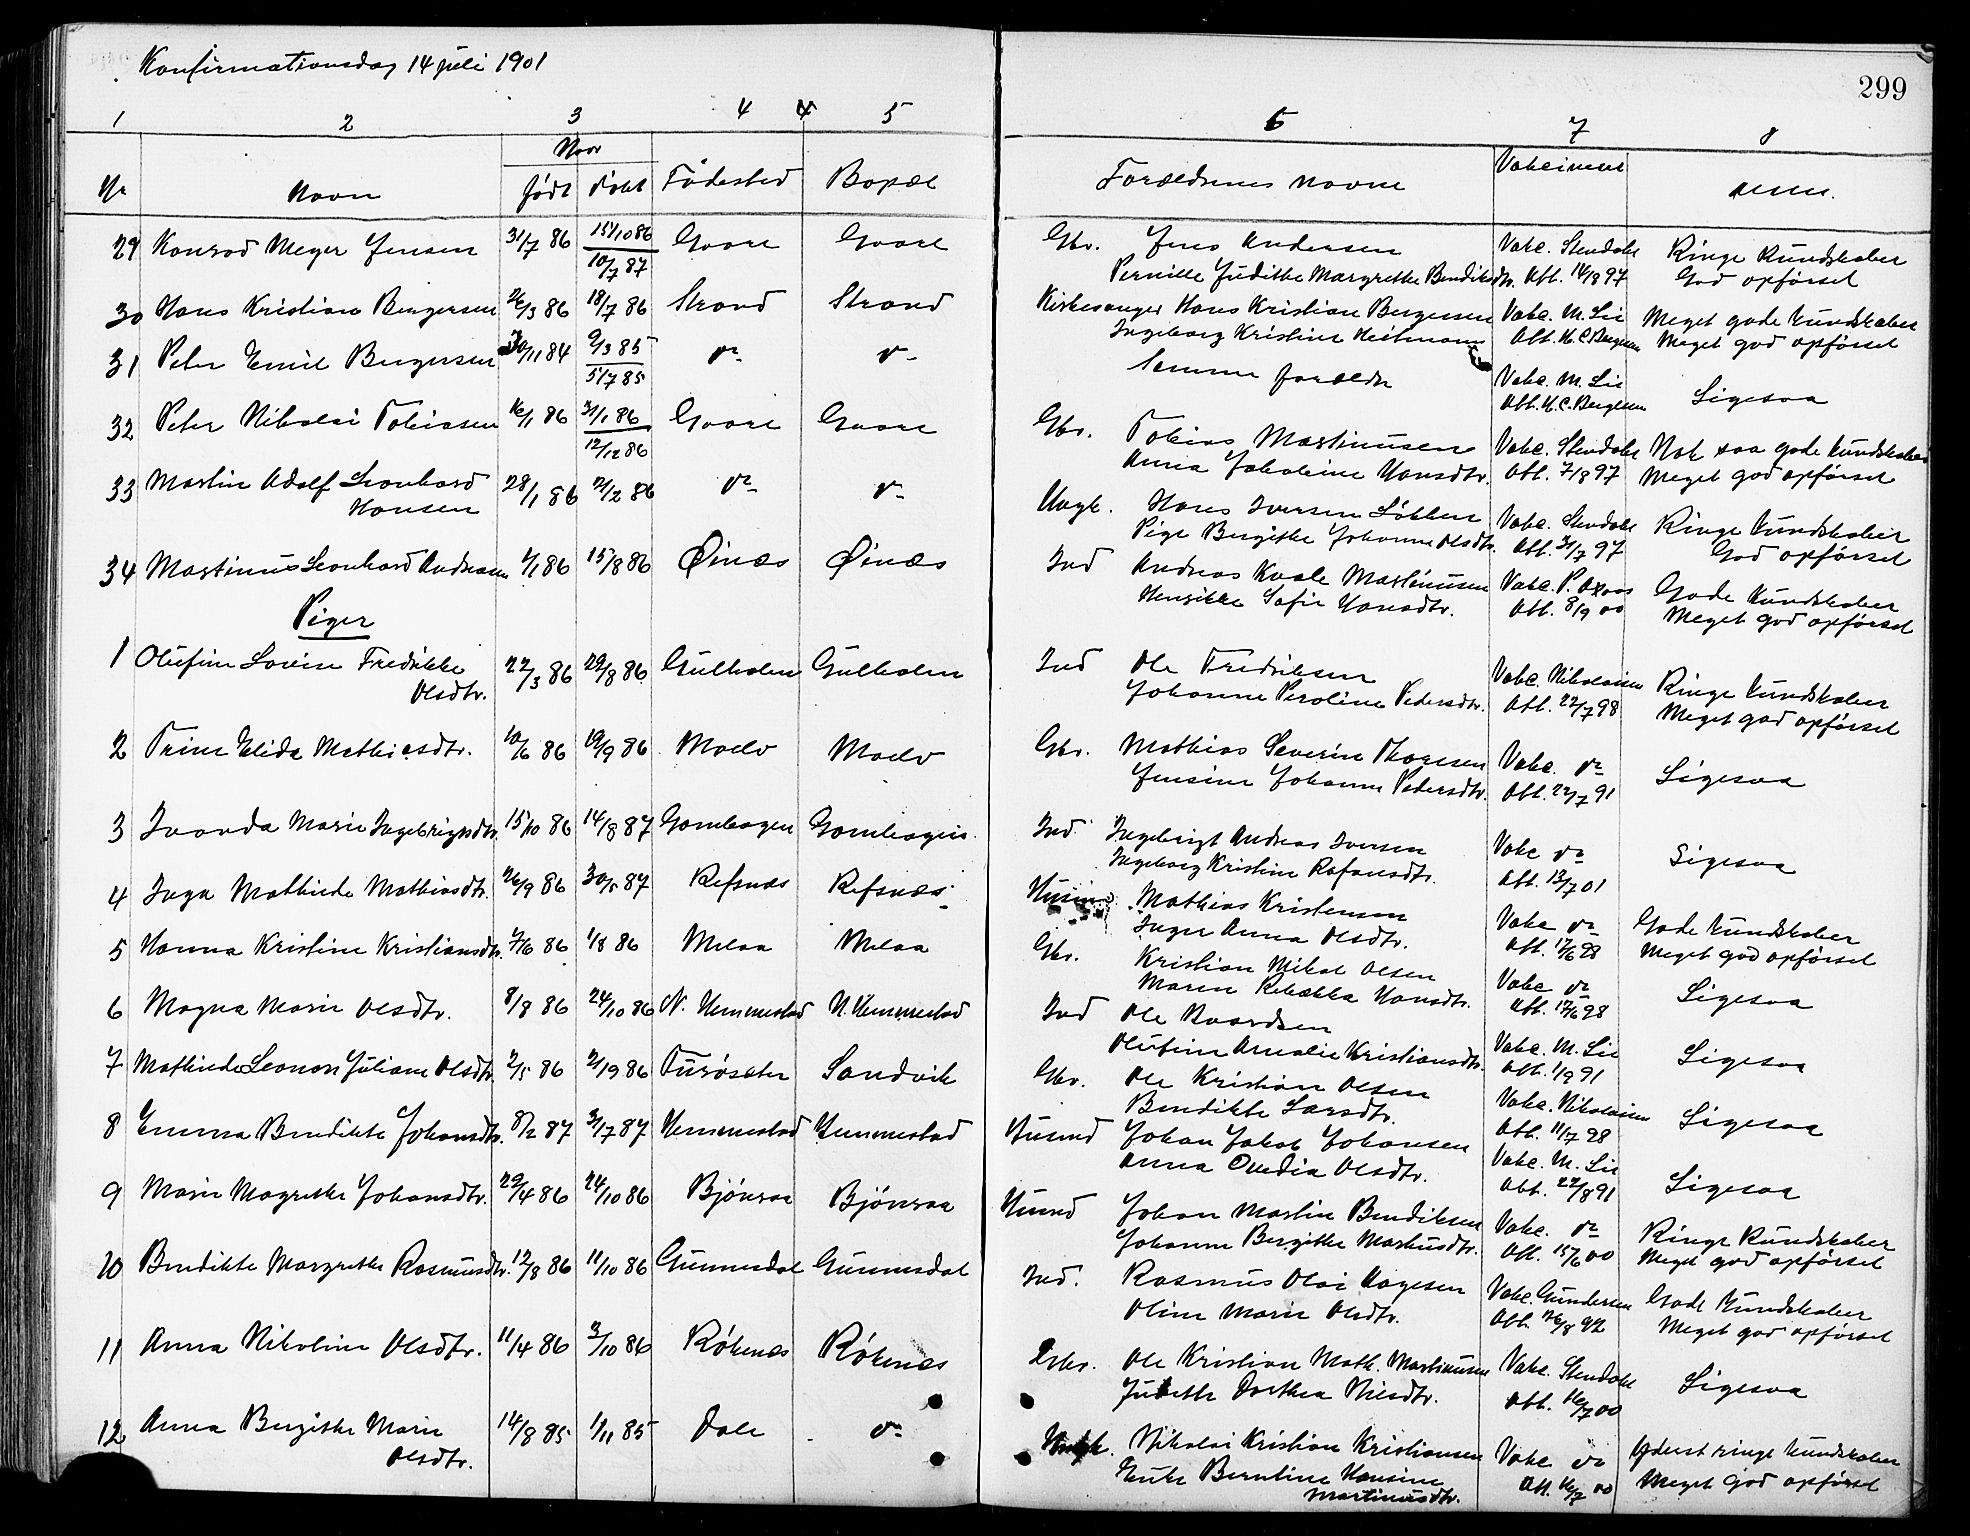 Konfirmationsdag 14 juli 1901
299
1 2 3 4 4 5 6 7 8
Naar
No Navn født døbt Fødested Bopæl Forældrenes Navne Vakcineret Anm.
29 Konrad Meyer Jensen 31/7 86 15/10 86 Gaare Gaare Gbr. Jens Andersen Vakc. Stendahl Ringe Kundskaber
10/7 87 Pernille Judithe Margrethe Bendiksdtr. Att. 14/8 97 God opførsel
30 Hans Kristian Bergersen 26/3 86 18/7 86 Strand Strand Kirkesanger Hans Kristian Bergersen Vakc. M. Lie Meget gode Kundskaber
Ingeborg Kristine Heitmann Att. H.C. Bergersen Meget god opførsel
31 Peter Emil Bergersen 30/11 84 9/3 85 do do Samme forældre Vakc. M. Lie Ligesaa
5/7 85 Att. H.C. Bergersen
32 Peter Nikolai Tobiasen 16/1 86 31/1 86 Gaare Gaare Gbr. Tobias Martinusen Vakc. Stendahl Nok saa gode Kundskaber
12/12 86 Anna Jakobine Hansdtr. Att. 7/8 97 Meget god opførsel
33 Martin Adolf Leonhard 28/1 86 21/2 86 do do Ungk. Hans Iversen Løkken Vakc. Stendahl Ringe Kundskaber
Hansen Pige Bergithe Johanne Olsdtr. Att. 31/7 97 God opførsel
34 Martinus Leonhard Andreasen 1/1 86 15/8 86 Øinæs Øinæs Ind Andreas Kvale Martinusen Vakc. P. Oxaas Gode Kundskaber
Henrikke Sofie Hansdtr. Att. 8/9 00 Meget god opførsel
Piger
1 Olufine Lovise Fredrikke 22/3 86 29/8 86 Gulholm Gulholm Ind Ole Fredriksen Vakc. Nikolaisen Ringe Kundskaber
Olsdtr. Johanne Peroline Pedersdtr. Att. 22/7 98 Meget god opførsel
2 Trine Elida Mathiasdtr. 10/6 86 19/9 86 Maelv Maelv Gbr. Mathias Severin Thoresen Vakc. do Ligesaa
Jensine Johanne Pedersdtr. Att. 22/7 91
3 Ivanda Marie Ingebrigtsdtr. 15/10 86 14/8 87 Gambogen Gambogen Ind Ingebrigt Andreas Iversen Vakc do Ligesaa
Ingeborg Kristine Rafaelsdtr. Att. 13/7 01
4 Inga Mathilde Mathiasdtr. 26/9 86 30/5 87 Refsnæs Refsnæs Mathias Kristensen Vakc do Gode Kundskaber
Inger Anna Olsdtr. Att. 17/6 98 Meget god opførsel
5 Hanna Kristine Kristiansdtr. 7/6 86 1/8 86 Melaa Melaa Gbr. Kristian Mikal Olsen Vakc do Ligesaa
Maren Rebekka Hansdtr. Att. 17/6 98
6 Magna Marie Olsdtr. 8/8 86 24/10 86 N. Hemmestad N. Hemmestad Ind Ole Baardsen Vakc. M. Lie Ligesaa
Olufine Amalie Kristiansdtr. Att. 1/9 91
7 Mathilde Leonora Juliane Olsdtr. 2/5 86 2/19 86 Furøsæter Sandvik Gbr. Ole Kristian Olsen Vakc. Nikolaisen Ligesaa
Bendikte Larsdtr. Att. 11/7 98
8 Emma Bendikte Johansdtr. 8/2 87 3/7 87 Hemmestad Hemmestad Husmd Johan Jakob Johansen Vakc. M. Lie Ligesaa
Anna Ovedia Olsdtr. Att. 22/8 91
9 Marie Magrethe Johansdtr. 29/4 86 24/10 86 Bjønraa Bjønraa Husmd Johan Martin Bendiksen Vakc. do Ringe Kundskaber
Johanne Bergithe Markusdtr. Att. 15/6 00 Meget god opførsel
10 Bendikte Margrethe Rasmusdtr. 12/8 86 11/10 86 Gunnesdal Gunnesdal Ind. Rasmus Olai Hagesen Vakc. Gundersen Gode Kundskaber
Oline Marie Olsdtr. Att. 26/8 92 Meget god opførsel
11 Anna Nikoline Olsdtr. 11/4 86 3/10 86 Røkenæs Røkenæs Ole Kristian Math. Martinusen Vakc. Stendahl Ligesaa
Judith Dorthea Nilsdtr. Att. 16/7 00
12 Anna Bergithe Marie 14/8 85 1/11 85 Dale do Ungk. Nikolai Kristian Kristiansen Vakc do Yderst ringe Kundskaber
Olsdtr. Enke Berntine Hansine Att. 16/7 00 Meget God opførsel
Martinusdtr.